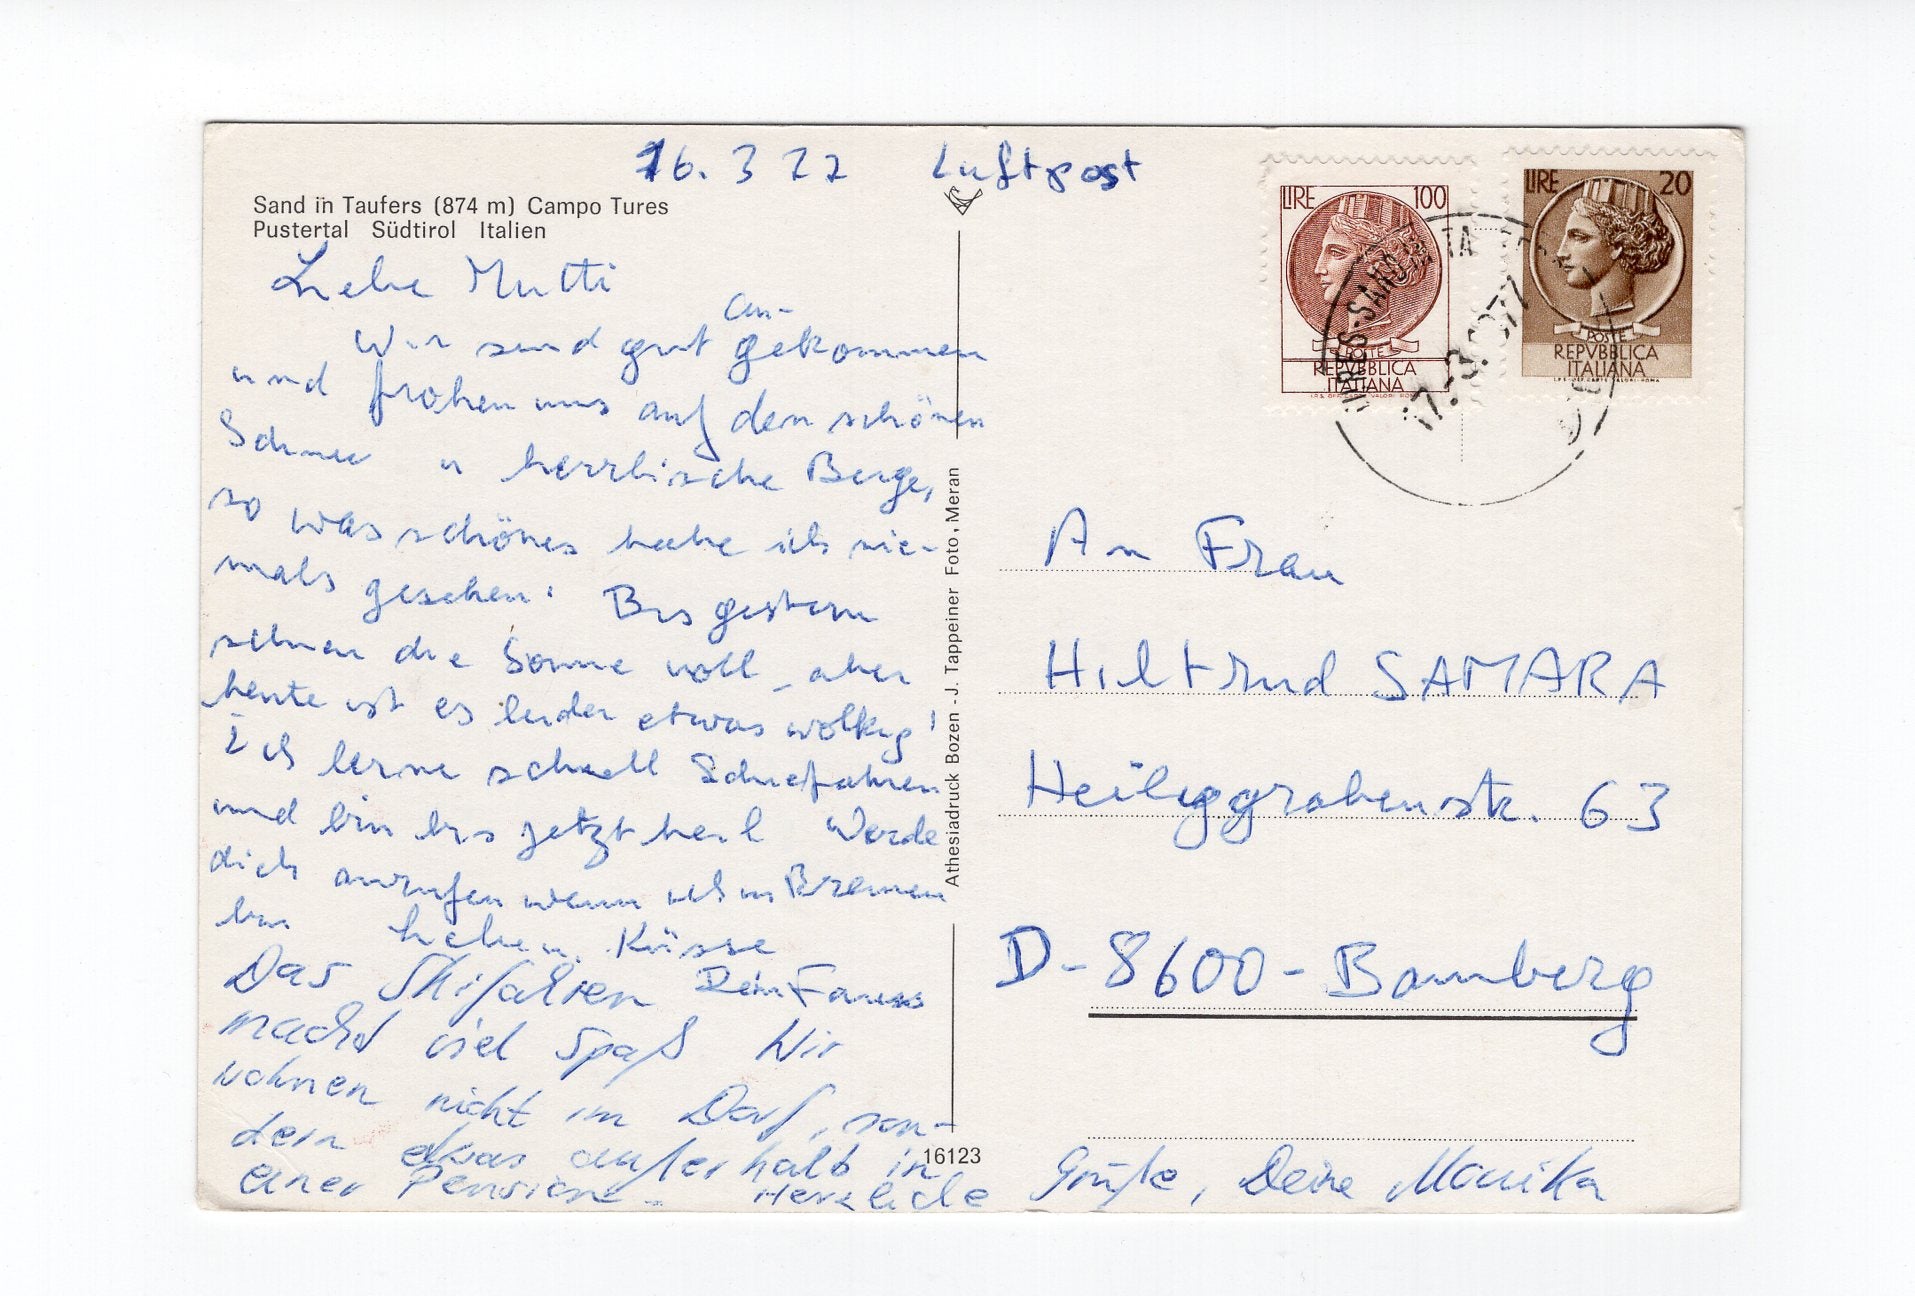 16. 3 77 Luftpost
Sand in Taufers (874 m) Campo Tures
Pustertal Südtirol Italien
Liebe Mutti
Wir sind gut an-gekommen
und frohen uns auf den schönen
Schnee u herrlische Berge,
so was schönes habe ich nie-
mals gesehen! Bis gestern
schien die Sonne voll - aber
heute ist es leider etwas wolkig!
Ich lerne schnell Schiefahren
und bin bis jetzt heil Werde
dich anrufen wenn ich in Bremen
bin lieben Küsse
Dein
Das Skifahren
macht viel Spaß Wir
wohnen nicht im Dorf, son-
dern etwas außerhalb in
einer Pension. Herzliche Grüße, Deine Monika
16123
Athesiadruck Bozen - J. Tappeiner Foto, Meran
LIRE 100
POSTE
REPVBBLICA
ITALIANA
LIRE 20
POSTE
REPVBBLICA
ITALIANA
17.-3.1977
An Frau
Hiltrud SAMARA
Heiliggrabenstr. 63
D-8600-Bamberg